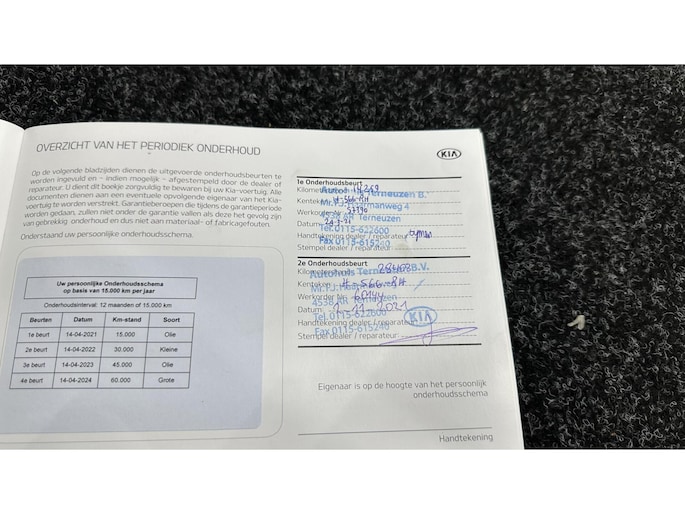 OVERZICHT VAN HET PERIODIEK ONDERHOUD
KIA
Op de volgende bladzijden dienen de uitgevoerde onderhoudsbeurten te
worden ingevuld en – indien mogelijk – afgestempeld door de dealer of
reparateur. U dient dit boekje zorgvuldig te bewaren bij uw Kia-voertuig. Alle
documenten dienen aan een eventuele opvolgende eigenaar van het Kia-
voertuig te worden verstrekt. Garantieberoepen die tijdens de garantieperiode
worden gedaan, zullen niet onder de garantie vallen als deze het gevolg zijn
van gebrekkig onderhoud en dus niet aan materiaal- of fabricagefouten.
Onderstaand uw persoonlijke onderhoudsschema.
Uw persoonlijke Onderhoudsschema
op basis van 15.000 km per jaar
Onderhoudsinterval: 12 maanden of 15.000 km
Beurten Datum Km-stand Soort
1e beurt 14-04-2021 15.000 Olie
2e beurt 14-04-2022 30.000 Kleine
3e beurt 14-04-2023 45.000 Olie
4e beurt 14-04-2024 60.000 Grote
1e Onderhoudsbeurt
Autohuis Terneuzen B.
4538 AR Terneuzen
Datum
Tel.0115-622600
Handtekening dealer / reparateur
Fax 0115-615240
Stempel dealer / reparateur
2e Onderhoudsbeurt
Autohuis Terneuzen B.V.
Kenteken H-566-RH
4538 AR Terneuzen
Datum: 1-11-2021
Tel.0115-622600
KIA
Handtekening dealer / reparateur
Fax 0115-615240
Stempel dealer / reparateur:
Eigenaar is op de hoogte van het persoonlijk
onderhoudsschema
Handtekening